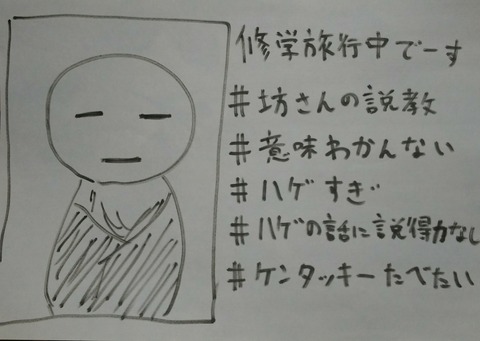 修学旅行中でーす
#坊さんの説教
#意味わかんない
#ハゲすぎ
#ハゲの話に説得力なし
#ケンタッキーたべたい